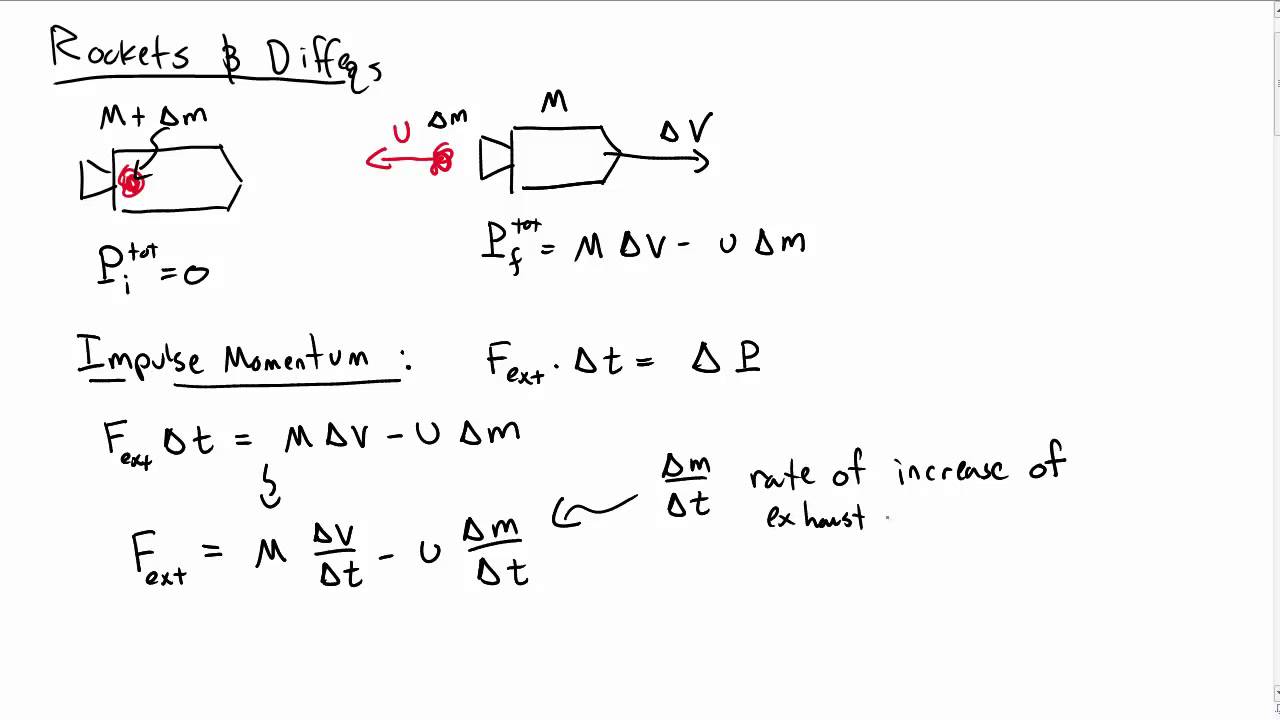 Rockets & Diffeqs
M + Δm
U Δm
M
ΔV
P_i^tot = 0
P_f^tot = M ΔV - U Δm
Impulse Momentum : F_ext · Δt = Δ P
F_ext Δt = M ΔV - U Δm
F_ext = M ΔV/Δt - U Δm/Δt
Δm/Δt rate of increase of
exhaust